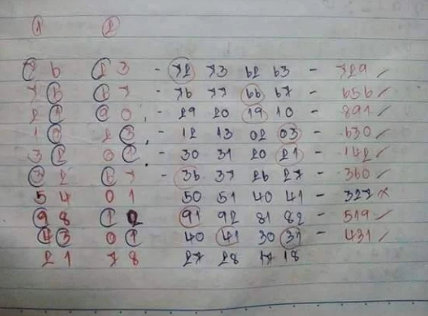 1 2
7 6 2 3 - 72 73 62 63 - 729 ✓
7 6 6 7 - 76 77 66 67 - 656 ✓
2 1 9 0 - 29 20 19 10 - 891 ✓
1 0 2 3 - 12 13 02 03 - 630 ✓
3 2 0 1 - 30 31 20 21 - 142 ✓
3 2 6 7 - 36 37 26 27 - 360 ✓
5 4 0 1 50 51 40 41 - 327 ×
9 8 1 2 91 92 81 82 - 519 ✓
4 3 0 1 40 41 30 31 - 431 ✓
2 1 7 8 27 28 17 18